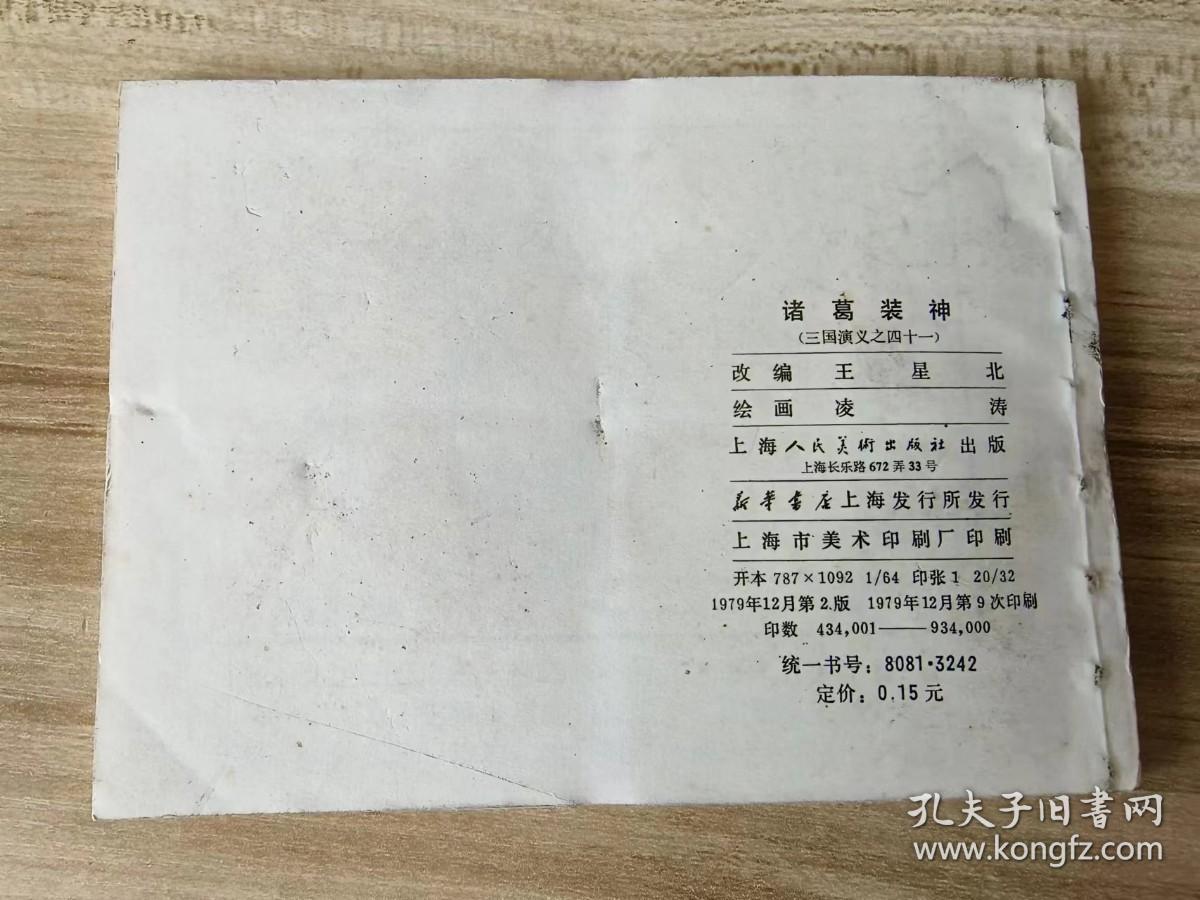 诸葛装神
(三国演义之四十一)
改编 王星北
绘画 凌涛
上海人民美術出版社出版
上海长乐路672弄33号
新华书店上海发行所发行
上海市美术印刷厂印刷
开本 787×1092 1/64 印张1 20/32
1979年12月第2版 1979年12月第9次印刷
印数 434,001——934,000
统一书号：8081·3242
定价：0.15元
孔夫子旧书网
www.kongfz.com